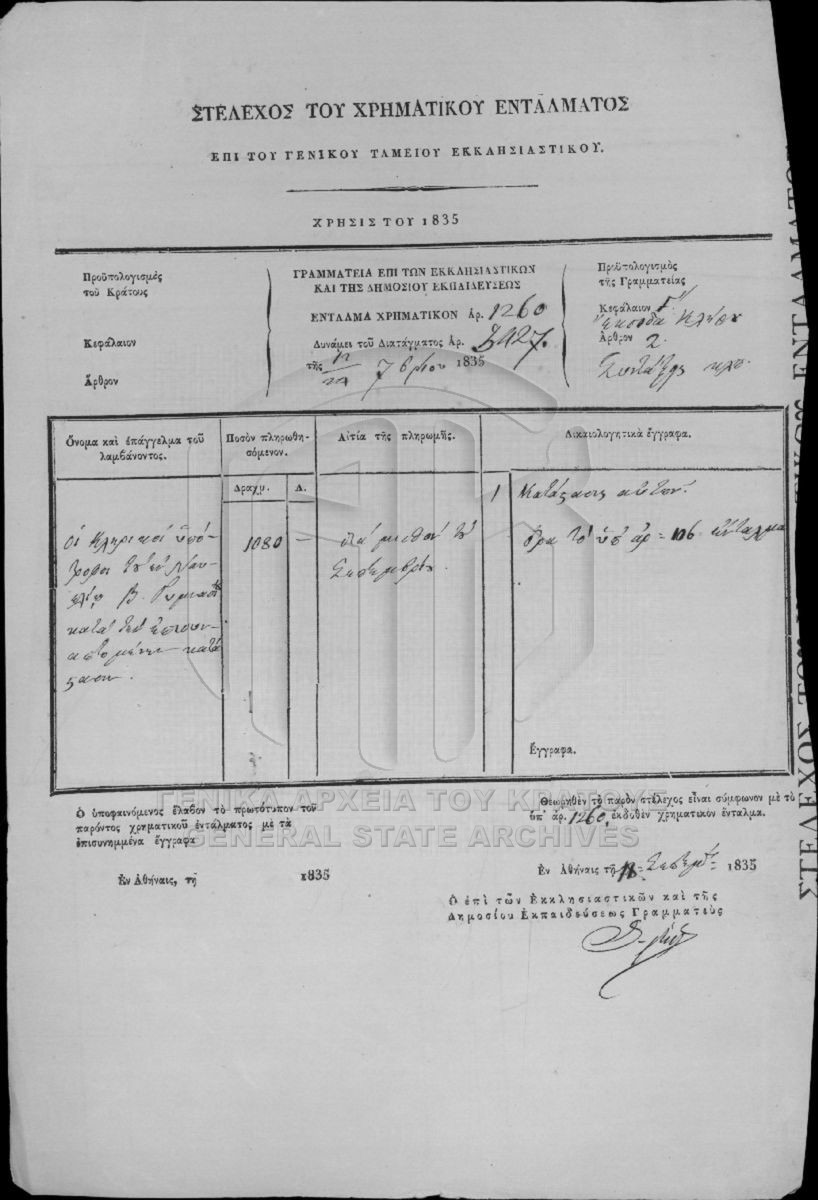 ΣΤΕΛΕΧΟΣ ΤΟΥ ΧΡΗΜΑΤΙΚΟΥ ΕΝΤΑΛΜΑΤΟΣ
ΕΠΙ ΤΟΥ ΓΕΝΙΚΟΥ ΤΑΜΕΙΟΥ ΕΚΚΛΗΣΙΑΣΤΙΚΟΥ.
ΧΡΗΣΙΣ ΤΟΥ 1835
Προϋπολογισμὸς
τοῦ Κράτους
Κεφάλαιον
Ἄρθρον
ΓΡΑΜΜΑΤΕΙΑ ΕΠΙ ΤΩΝ ΕΚΚΛΗΣΙΑΣΤΙΚΩΝ
ΚΑΙ ΤΗΣ ΔΗΜΟΣΙΟΥ ΕΚΠΑΙΔΕΥΣΕΩΣ
ΕΝΤΑΛΜΑ ΧΡΗΜΑΤΙΚΟΝ ἀρ. 1260
Δυνάμει τοῦ Διατάγματος Ἀρ.
τῆς 7βρίου 1835
Προϋπολογισμὸς
τῆς Γραμματείας
Κεφάλαιον Γ
Ἔξοδα Κλήρου
Ἄρθρον 2.
Συντάξεις κλπ.
Ὄνομα καὶ ἐπάγγελμα τοῦ
λαμβάνοντος.
Ποσὸν πληρωθη-
σόμενον.
Δραχμ. Λ.
Αἰτία τῆς πληρωμῆς.
Δικαιολογητικὰ ἔγγραφα.
Οἱ Κληρικοὶ ὑπό-
τροφοι τοῦ ἐν Ναυ-
πλίῳ Β. Γυμνασίου
κατὰ τὴν ἐπισυν-
απτομένην κατά
ςασιν.
1080 —
διὰ μισθὸν τοῦ
Σεπτεμβρίου.
1 Κατάςασις αὐτῶν.
ὅρα τὸ ὑπ' ἀρ = ἔνταλμα
Ἔγγραφα.
Ὁ ὑποφαινόμενος ἔλαβον τὸ πρωτότυπον τοῦ
παρόντος χρηματικοῦ ἐντάλματος μὲ τὰ
ἐπισυνημμένα ἔγγραφα
Ἐν Ἀθήναις, τῇ 1835
Θεωρηθὲν τὸ παρὸν στέλεχος εἶναι σύμφωνον μὲ τὸ
ὑπ' ἀρ. 1260, ἐκδοθὲν χρηματικὸν ἔνταλμα.
Ἐν Ἀθήναις τῇ Σεπτεμ = 1835
Ὁ ἐπὶ τῶν Ἐκκλησιαστικῶν καὶ τῆς
Δημοσίου Ἐκπαιδεύσεως Γραμματεὺς
ΓΕΝΙΚΑ ΑΡΧΕΙΑ ΤΟΥ ΚΡΑΤΟΥΣ
GENERAL STATE ARCHIVES